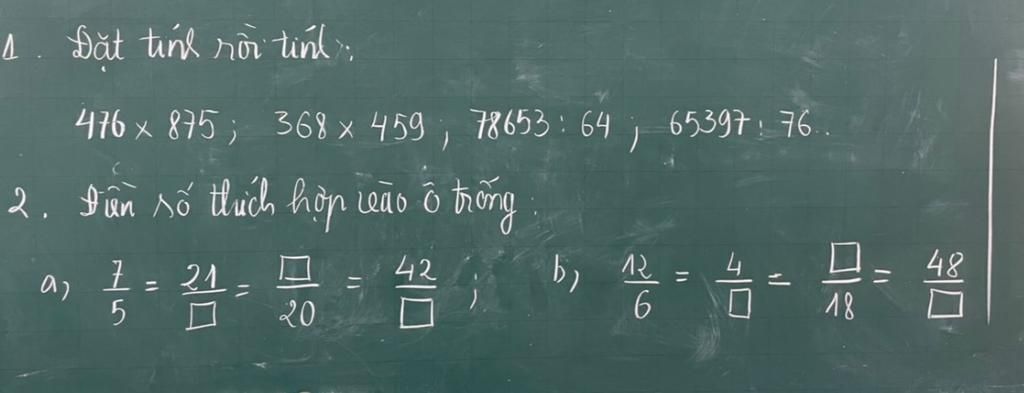 1. Đặt tính rồi tính:
476 × 875; 368 × 459; 78653 : 64; 65397 : 76.
2. Điền số thích hợp vào ô trống.
a, 7/5 = 21/□ = □/20 = 42/□; b, 12/6 = 4/□ = □/18 = 48/□